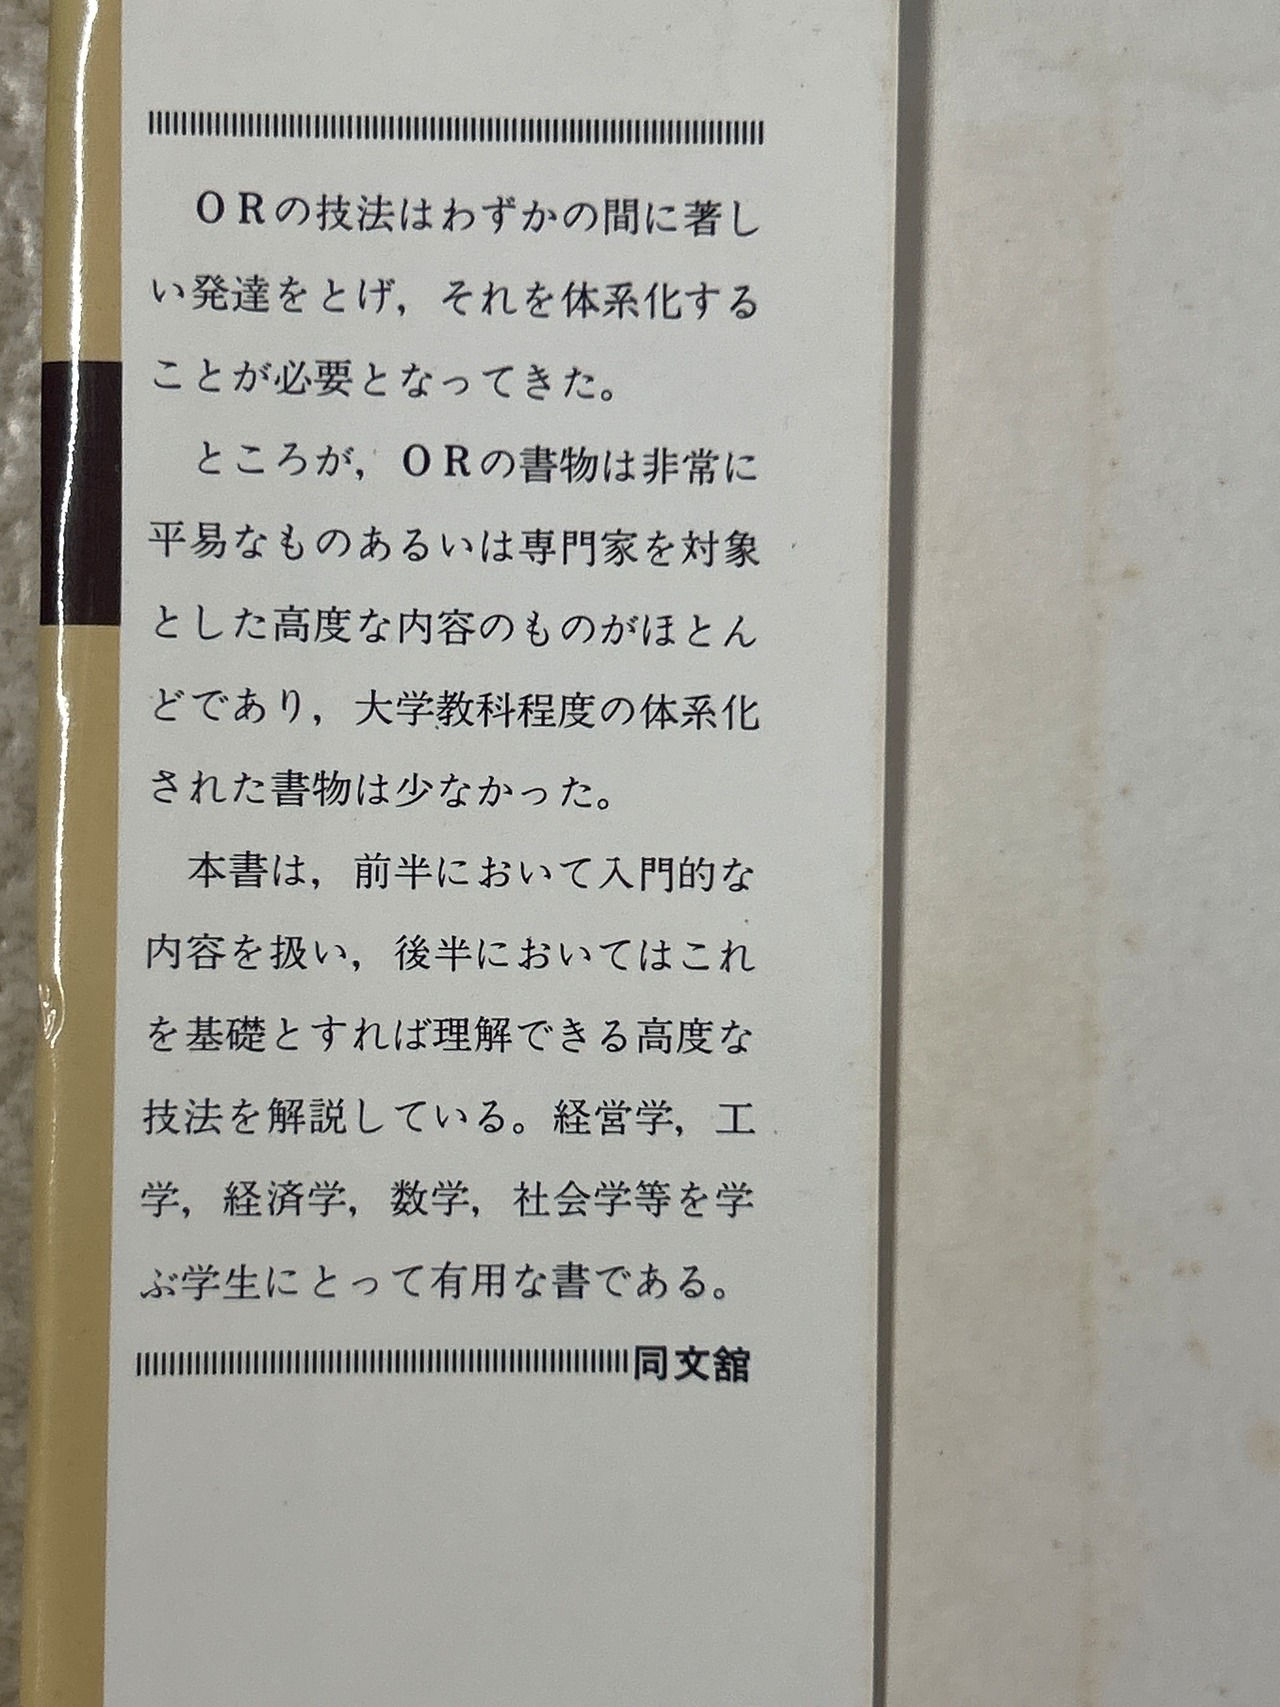 ＯＲの技法はわずかの間に著し
い発達をとげ，それを体系化する
ことが必要となってきた。
　ところが，ＯＲの書物は非常に
平易なものあるいは専門家を対象
とした高度な内容のものがほとん
どであり，大学教科程度の体系化
された書物は少なかった。
　本書は，前半において入門的な
内容を扱い，後半においてはこれ
を基礎とすれば理解できる高度な
技法を解説している。経営学，工
学，経済学，数学，社会学等を学
ぶ学生にとって有用な書である。
同文舘